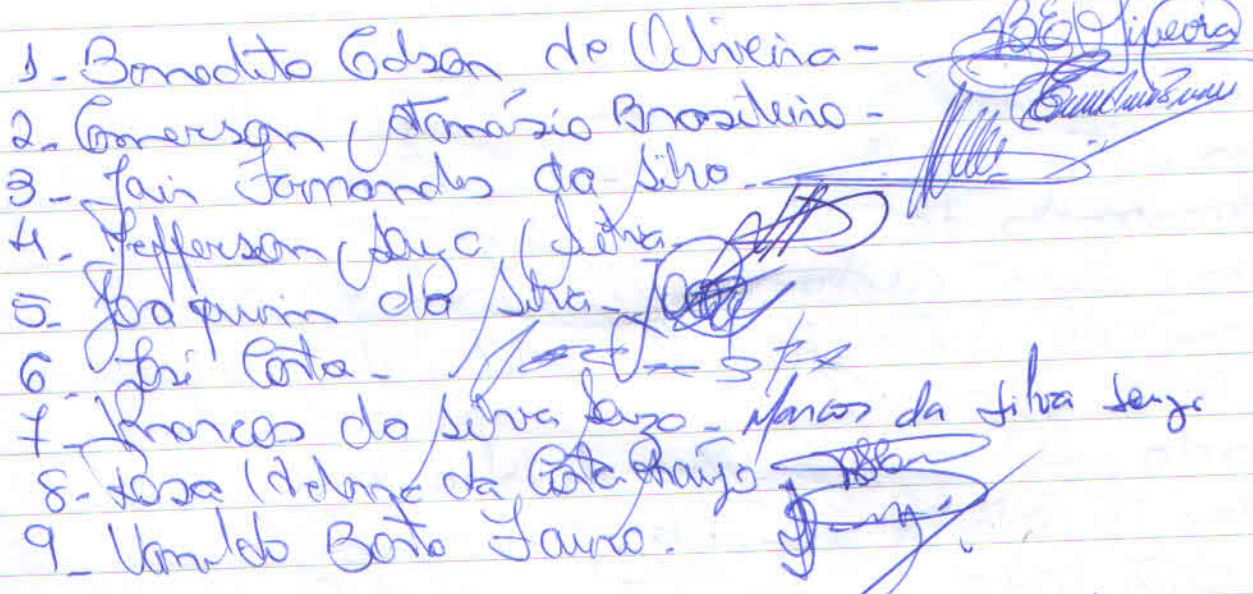 1- Benedito Edson de Oliveira - BEOliveira
2- Emerson Atanásio Brasileiro -
3- Jair Fernandes da Silva -
4. Jefferson Silva
5- Joaquim da Silva -
6 José Costa -
7- Marcos da Silva - Marcos da Silva
8- Rosa da Costa Araújo -
9- Vanildo Bento Lauro.